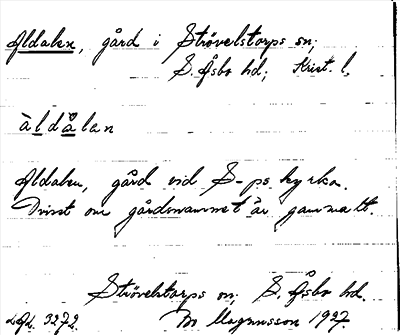 Aldalen, gård i Strövelstorps sn;
S. Åsbo hd; Krist. l.
àldålan
Aldalen, gård vid S-ps kyrka.
Tvivel om gårdsnamnet är gammalt.
Strövelstorps sn; S. Åsbo hd.
3272. Magnusson 1927